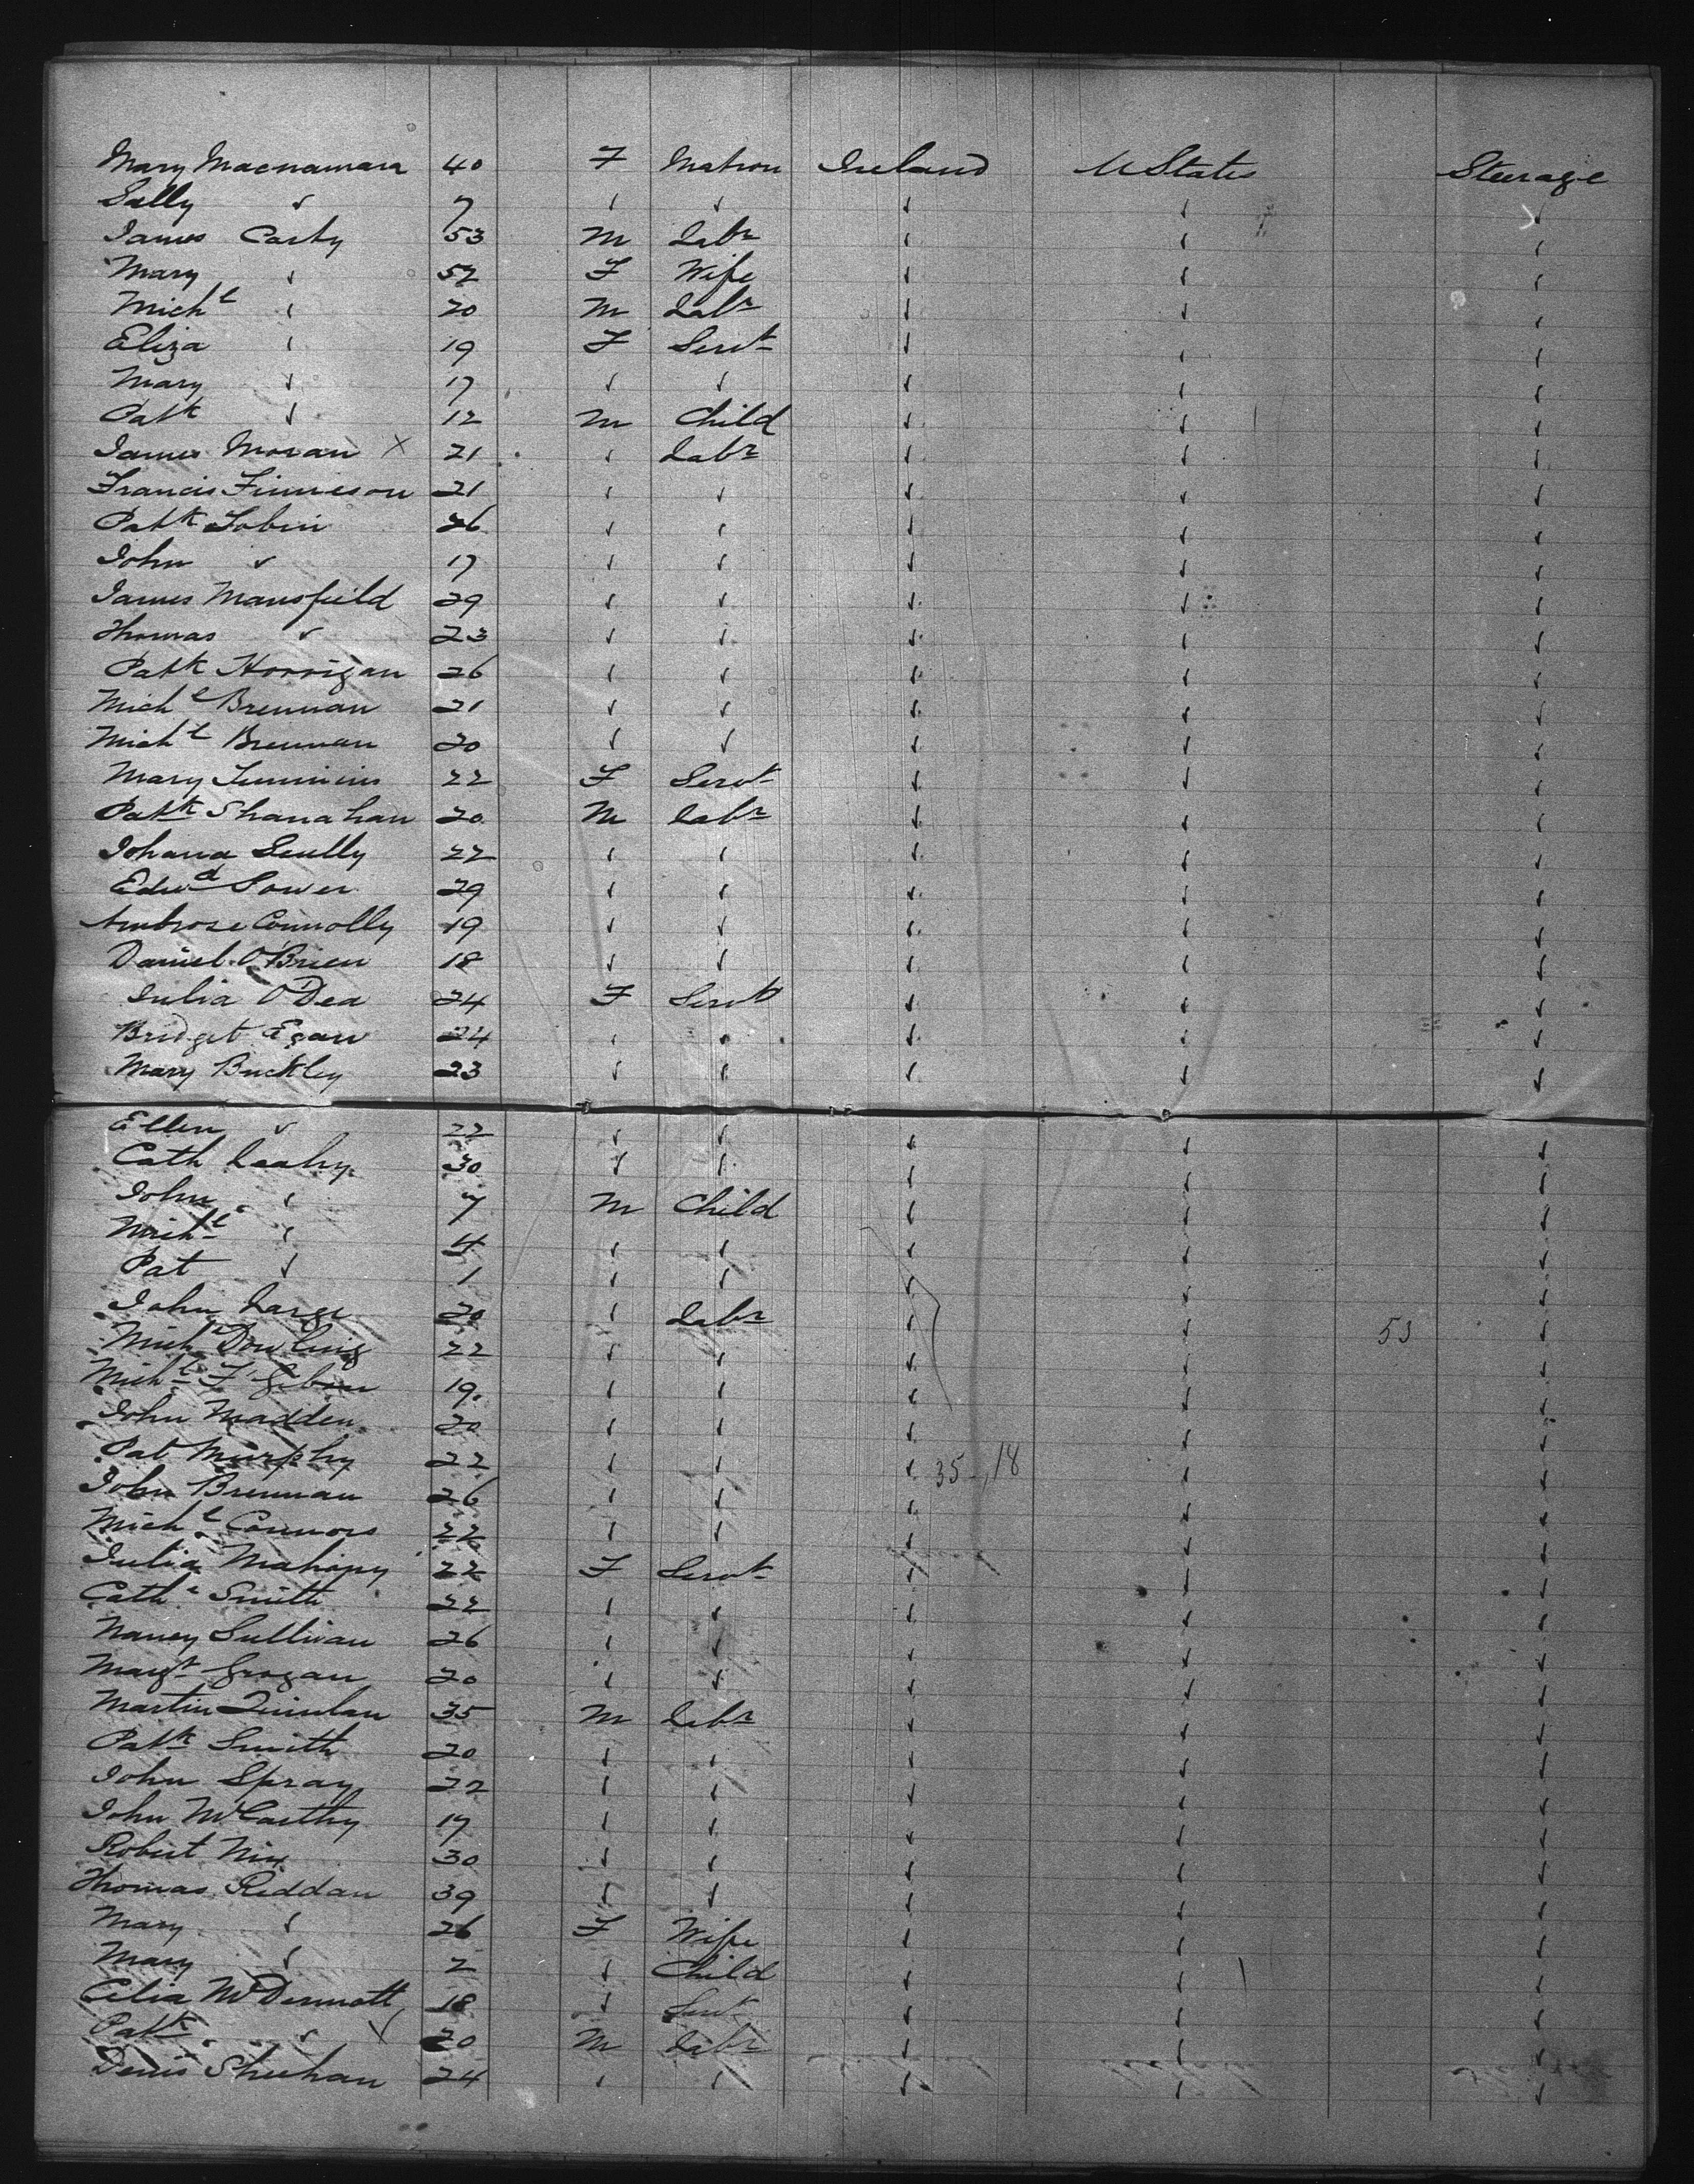 Mary Macnamara 40 F Matron Ireland U States Steerage
Sally ✓ 7 ✓ ✓ ✓ ✓ ✓
James Carty 53 M Labr ✓ ✓ ✓
Mary ✓ 52 F Wife ✓ ✓ ✓
Michl ✓ 20 M Labr ✓ ✓ ✓
Eliza ✓ 19 F Servt ✓ ✓ ✓
Mary ✓ 17 ✓ ✓ ✓ ✓ ✓
Patk ✓ 12 M Child ✓ ✓ ✓
James Moran X 21 ✓ Labr ✓ ✓ ✓
Francis Finneson 21 ✓ ✓ ✓ ✓ ✓
Patk Tobin 26 ✓ ✓ ✓ ✓ ✓
John ✓ 17 ✓ ✓ ✓ ✓ ✓
James Mansfield 29 ✓ ✓ ✓ ✓ ✓
Thomas ✓ 23 ✓ ✓ ✓ ✓ ✓
Patk Horrigan 26 ✓ ✓ ✓ ✓ ✓
Michl Brennan 21 ✓ ✓ ✓ ✓ ✓
Michl Brennan 20 ✓ ✓ ✓ ✓ ✓
Mary 22 F Servt ✓ ✓ ✓
Patk Shanahan 20 M Labr ✓ ✓ ✓
Johana Scully 22 ✓ ✓ ✓ ✓ ✓
Edwd 29 ✓ ✓ ✓ ✓ ✓
Ambrose Connolly 19 ✓ ✓ ✓ ✓ ✓
Daniel O'Brien 18 ✓ ✓ ✓ ✓ ✓
Julia O'Dea 24 F Servt ✓ ✓ ✓
Bridget Egan 24 ✓ ✓ ✓ ✓ ✓
Mary Buckley 23 ✓ ✓ ✓ ✓ ✓
Ellen ✓ 22 ✓ ✓ ✓ ✓ ✓
Cath Leahy 30 ✓ ✓ ✓ ✓ ✓
John ✓ 7 M Child ✓ ✓ ✓
Michl ✓ 4 ✓ ✓ ✓ ✓ ✓
Pat ✓ 1 ✓ ✓ ✓ ✓ ✓
John Large 20 ✓ Labr ✓ ✓ ✓
Michl Dowling 22 ✓ ✓ ✓ ✓ 53 ✓
Michl F'Gibon 19 ✓ ✓ ✓ ✓ ✓
John Madden 20 ✓ ✓ ✓ ✓ ✓
Pat Murphy 22 ✓ ✓ ✓ 35 - 18 ✓ ✓
John Brennan 26 ✓ ✓ ✓ ✓ ✓
Michl Connors 22 ✓ ✓ ✓ ✓ ✓
Julia Mahony 22 F Servt ✓ ✓ ✓
Cathe Smith 22 ✓ ✓ ✓ ✓ ✓
Nancy Sullivan 26 ✓ ✓ ✓ ✓ ✓
Margt Grogan 20 ✓ ✓ ✓ ✓ ✓
Martin Quinlan 35 M Labr ✓ ✓ ✓
Patk Smith 20 ✓ ✓ ✓ ✓ ✓
John Spray 22 ✓ ✓ ✓ ✓ ✓
John McCarthy 17 ✓ ✓ ✓ ✓ ✓
Robert Nix 30 ✓ ✓ ✓ ✓ ✓
Thomas Reddan 39 ✓ ✓ ✓ ✓ ✓
Mary ✓ 26 F Wife ✓ ✓ ✓
Mary ✓ 2 ✓ Child ✓ ✓ ✓
Celia McDermott 18 ✓ Servt ✓ ✓ ✓
Patk ✓ ✓ 20 M Labr ✓ ✓ ✓
Denis Sheehan 24 ✓ ✓ ✓ ✓ ✓